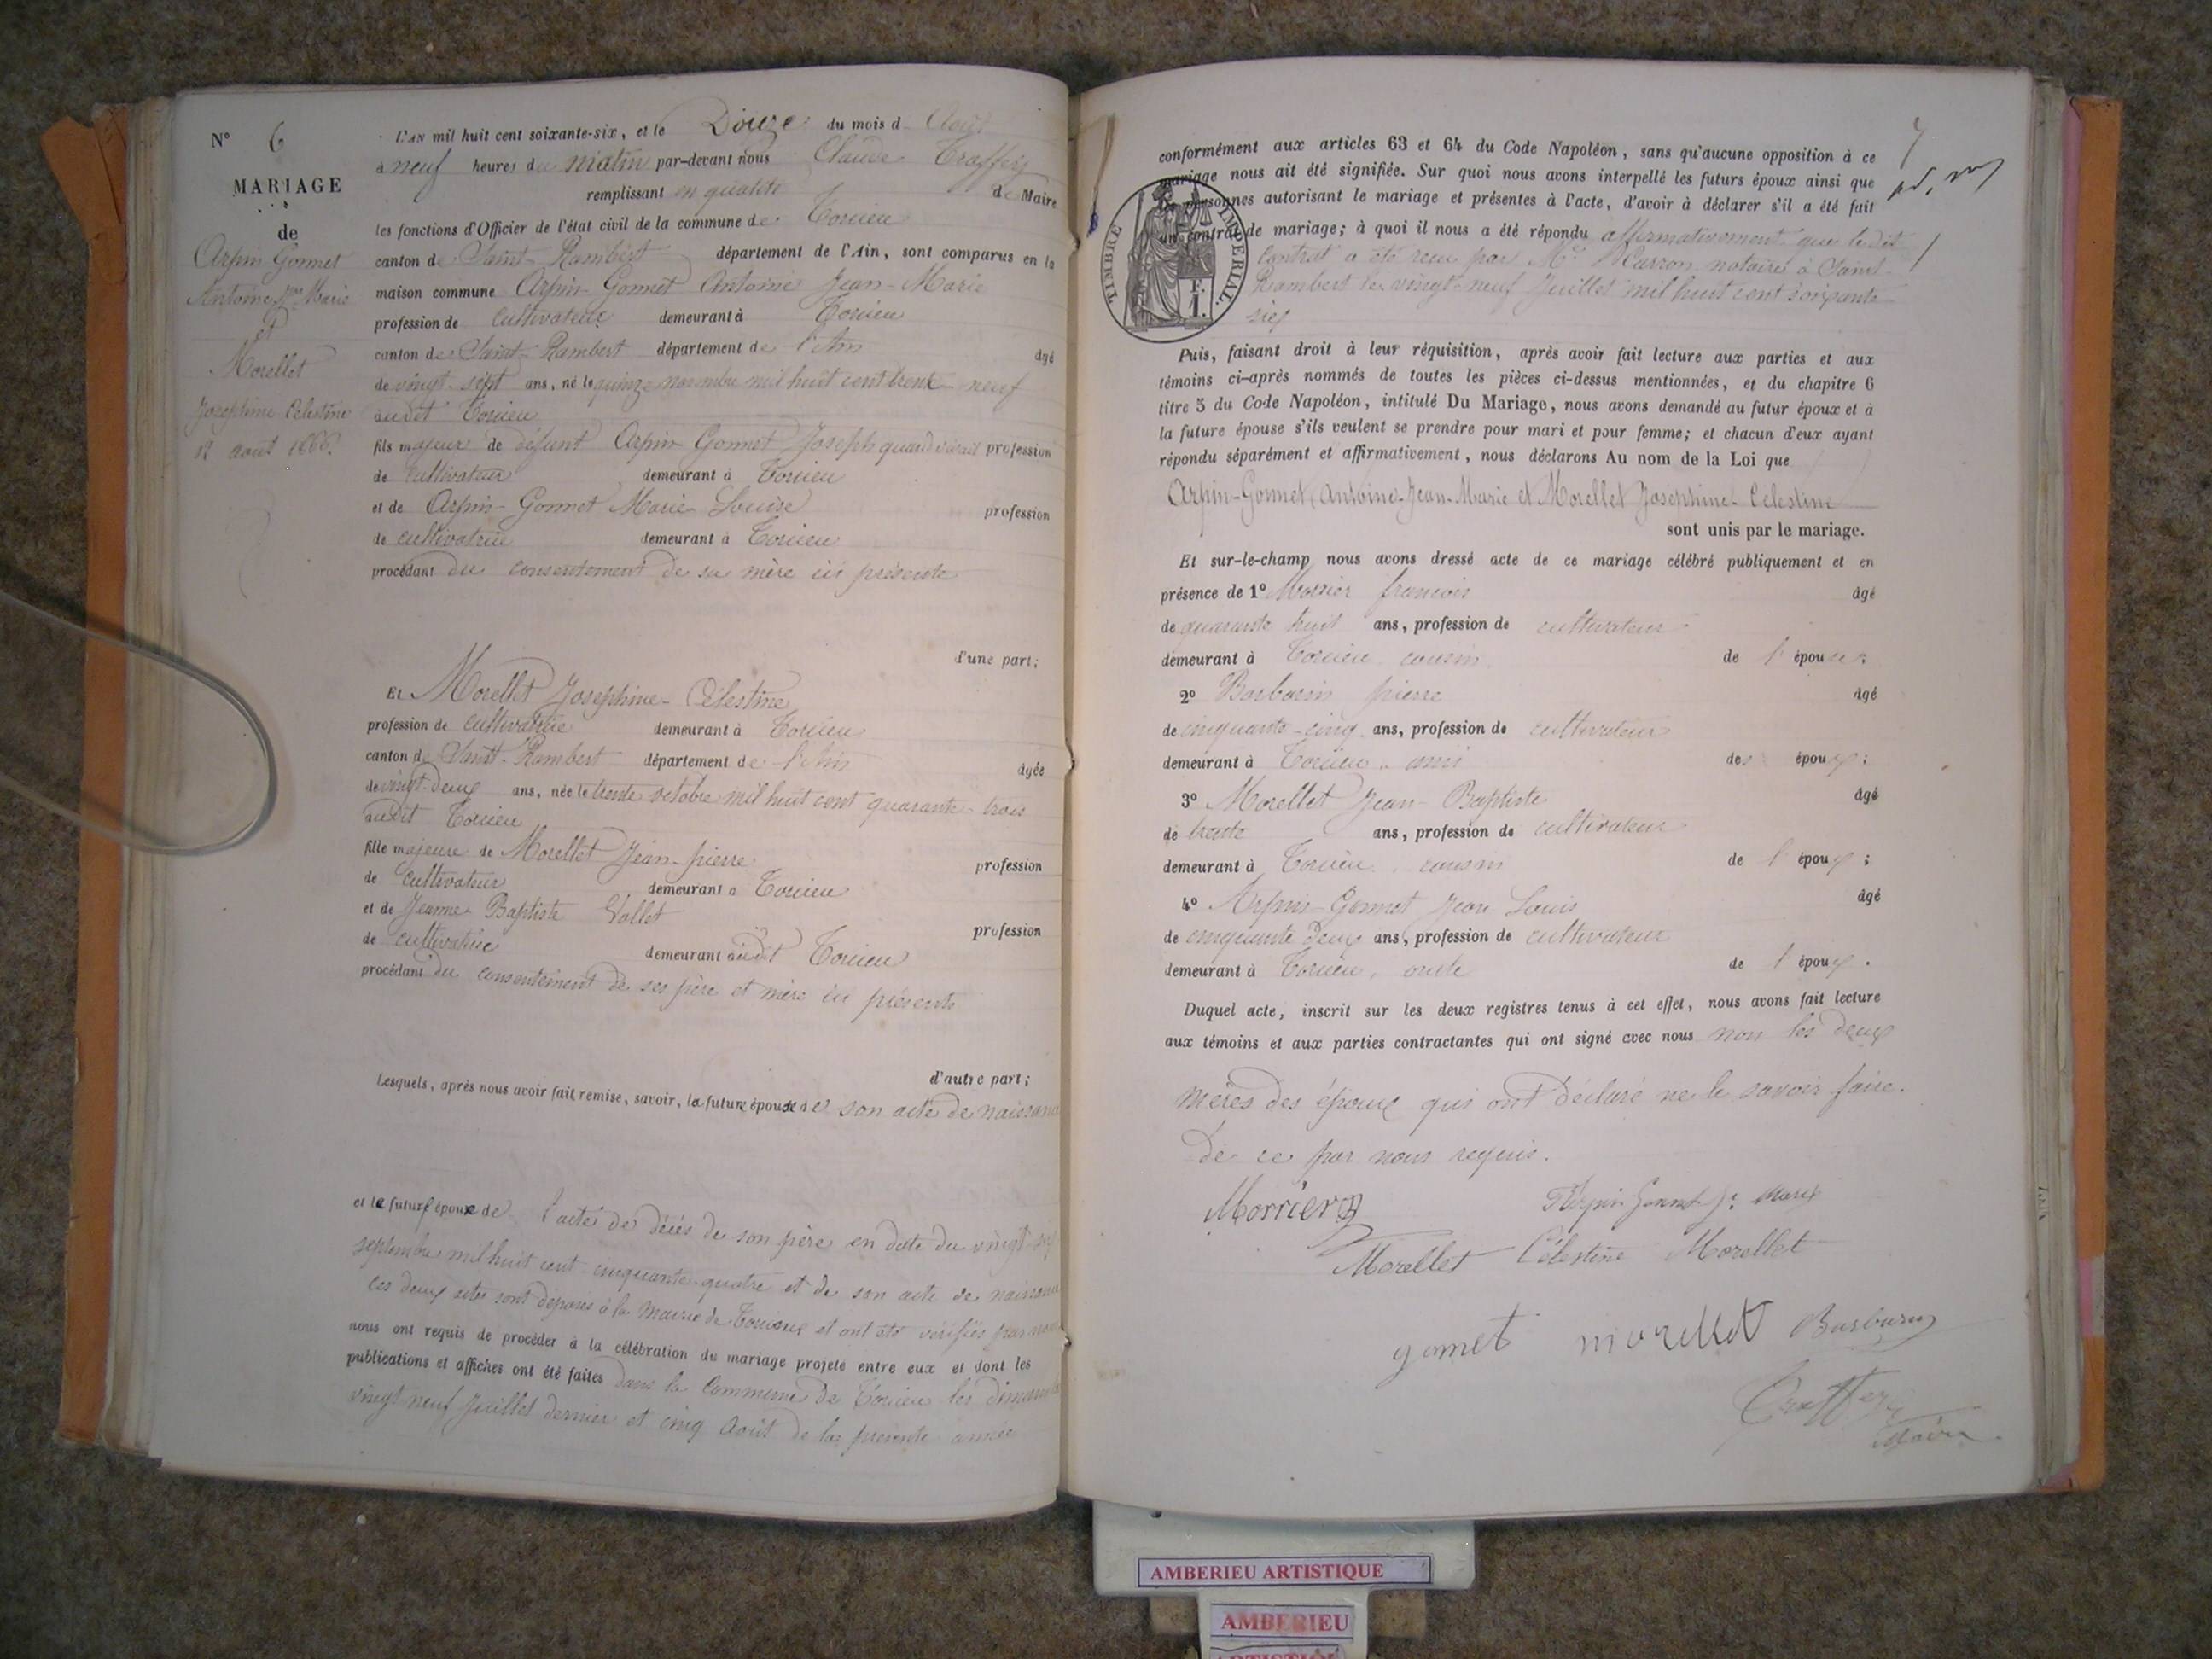 N° 6
MARIAGE
de
Arpin Gonnet
Antoine Jn Marie
et
Morellet
Josephine Celestine
12 aout 1866.
L'AN mil huit cent soixante-six, et le Douze du mois d Août
à neuf heures du matin par-devant nous Claude Traffey
remplissant en qualité de Maire
les fonctions d'Officier de l'état civil de la commune de Torcieu
canton de Saint-Rambert département de l'Ain, sont comparus en la
maison commune Arpin-Gonnet Antoine Jean-Marie
profession de cultivateur demeurant à Torcieu
canton de Saint-Rambert département de l'Ain âgé
de vingt-sept ans, né le quinze novembre mil huit cent trente-neuf
audit Torcieu
fils majeur de défunt Arpin Gonnet Joseph quand vivait profession
de cultivateur demeurant à Torcieu
et de Arpin-Gonnet Marie Louise profession
de cultivatrice demeurant à Torcieu
procédant du consentement de sa mère ici présente
d'une part;
Et Morellet Josephine-Célestine
profession de cultivatrice demeurant à Torcieu
canton de Saint-Rambert département de l'Ain âgée
de vingt-deux ans, née le trente octobre mil huit cent quarante-trois
audit Torcieu
fille majeure de Morellet Jean-pierre profession
de cultivateur demeurant à Torcieu
et de Jeanne Baptiste Vallet profession
de cultivatrice demeurant audit Torcieu
procédant du consentement de ses père et mère ici présents
d'autre part;
Lesquels, après nous avoir fait remise, savoir, la future épouse de son acte de naissance
et le futur époux de l'acte de décès de son père en date du vingt-six
septembre mil huit cent cinquante-quatre et de son acte de naissance
ces deux actes sont déposés à la Mairie de Torcieu et ont été vérifiés par nous
nous ont requis de procéder à la célébration du mariage projeté entre eux et dont les
publications et affiches ont été faites dans la Commune de Torcieu les dimanches
vingt neuf Juillet dernier et cinq Août de la présente année
7
conformément aux articles 63 et 64 du Code Napoléon, sans qu'aucune opposition à ce
mariage nous ait été signifiée. Sur quoi nous avons interpellé les futurs époux ainsi que
personnes autorisant le mariage et présentes à l'acte, d'avoir à déclarer s'il a été fait
un contrat de mariage; à quoi il nous a été répondu affirmativement que le dit
contrat a été reçu par Me notaire à Saint-
Rambert le vingt-neuf Juillet mil huit cent soixante
six
TIMBRE IMPÉRIAL.
F.
1.
Puis, faisant droit à leur réquisition, après avoir fait lecture aux parties et aux
témoins ci-après nommés de toutes les pièces ci-dessus mentionnées, et du chapitre 6
titre 5 du Code Napoléon, intitulé Du Mariage, nous avons demandé au futur époux et à
la future épouse s'ils veulent se prendre pour mari et pour femme; et chacun d'eux ayant
répondu séparément et affirmativement, nous déclarons Au nom de la Loi que
Arpin-Gonnet Antoine-Jean-Marie et Morellet Josephine-Celestine
sont unis par le mariage.
Et sur-le-champ nous avons dressé acte de ce mariage célébré publiquement et en
présence de 1° Morrier francois âgé
de quarante huit ans, profession de cultivateur
demeurant à Torcieu cousin de l'épouse;
2° Barbarin pierre âgé
de cinquante-cinq ans, profession de cultivateur
demeurant à Torcieu ami des époux;
3° Morellet Jean-Baptiste âgé
de trente ans, profession de cultivateur
demeurant à Torcieu cousin de l'époux;
4° Arpin-Gonnet Jean Louis âgé
de cinquante deux ans, profession de cultivateur
demeurant à Torcieu, oncle de l'époux.
Duquel acte, inscrit sur les deux registres tenus à cet effet, nous avons fait lecture
aux témoins et aux parties contractantes qui ont signé avec nous non les deux
mères des époux qui ont déclaré ne le savoir faire.
De ce par nous requis.
Morrier Arpin Gonnet Jn Marie
Morellet Célestine Morellet
gonnet morellet Barbarin
Traffey
Maire
AMBERIEU ARTISTIQUE
AMBERIEU
ARTISTIQUE